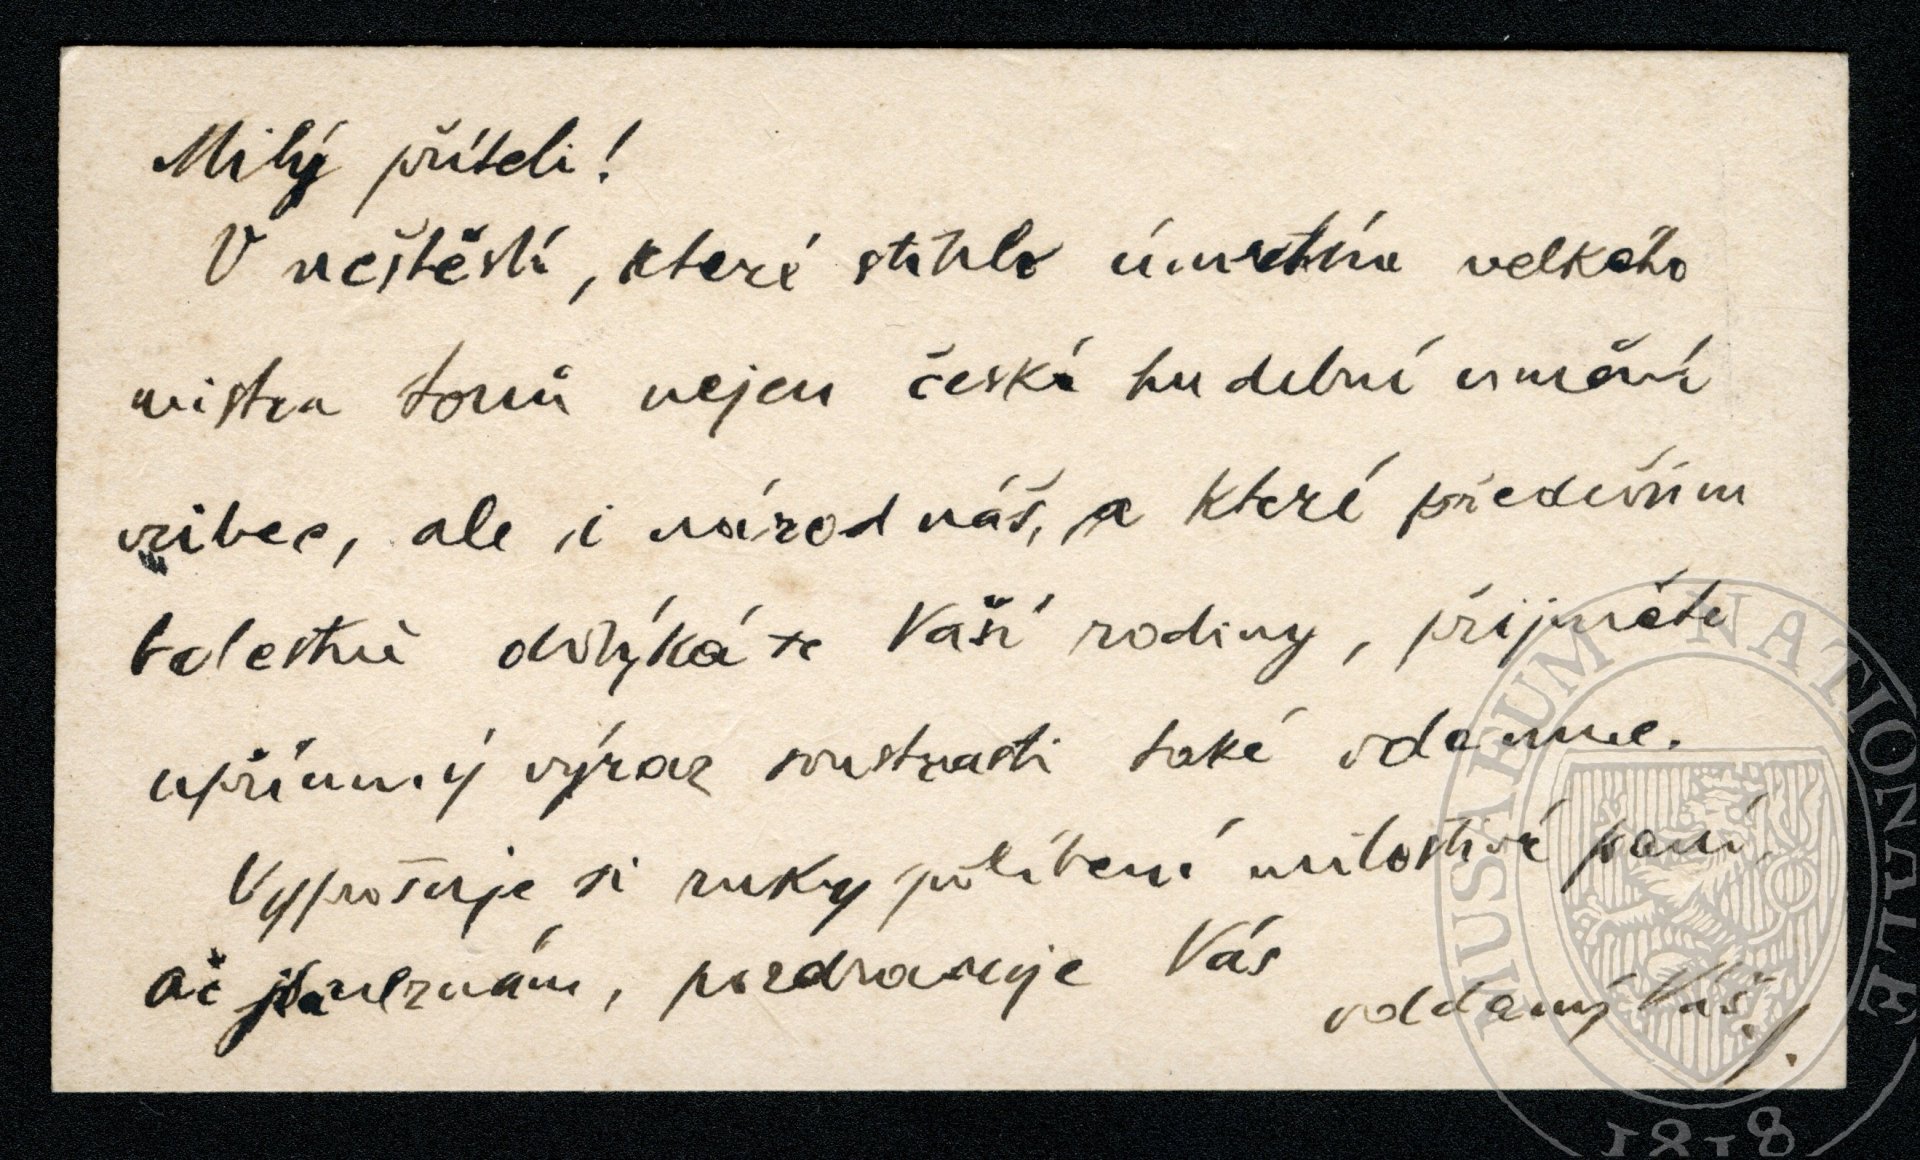 Milý příteli!
V neštěstí, které stihlo úmrtím velkého
mistra tonů nejen české hudební umění
vůbec, ale i národ náš, a které především
bolestně dotýká se Vaší rodiny, přijměte
upřímný výraz soustrasti také ode mne.
Vyprošuje si ruky políbení milostivé paní,
ač jí neznám, pozdravuje Vás
oddaný Váš J.
MUSAEUM NATIONALE
1818